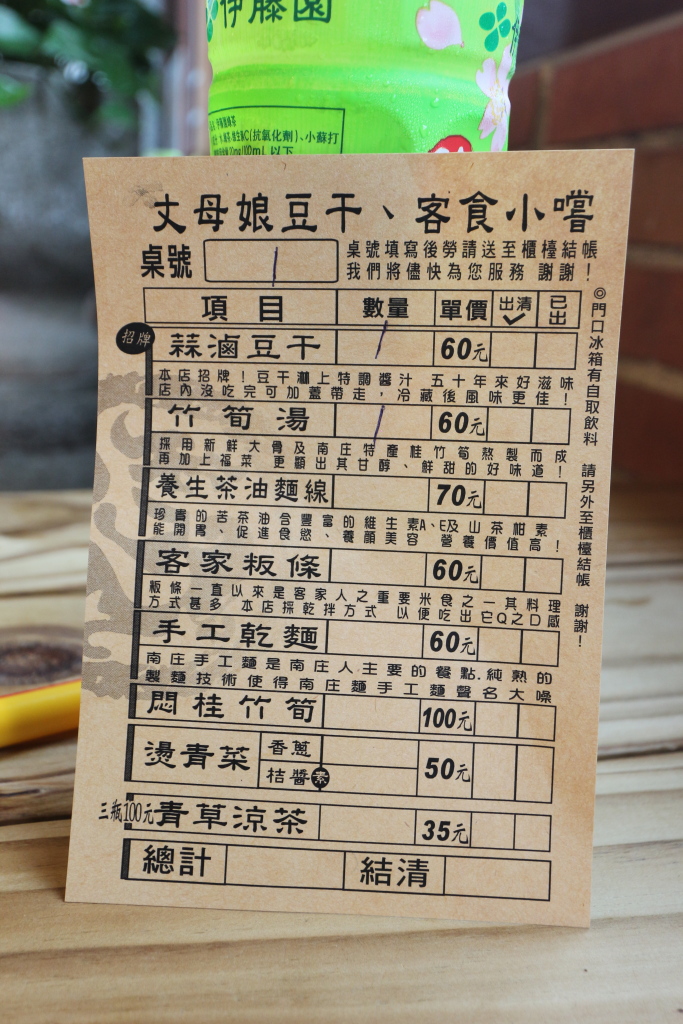 伊藤園
維生素C(抗氧化劑)、小蘇打
丈母娘豆干、客食小嚐
桌號 1
桌號填寫後勞請送至櫃檯結帳
我們將儘快為您服務 謝謝!
項目 數量 單價 出清✓ 已出
招牌 蒜滷豆干 / 60元
本店招牌!豆干淋上特調醬汁 五十年來好滋味
店內沒吃完可加蓋帶走,冷藏後風味更佳!
竹筍湯 / 60元
採用新鮮大骨及南庄特產桂竹筍熬製而成
再加上福菜 更顯出其甘醇、鮮甜的好味道!
養生茶油麵線 70元
珍貴的苦茶油含豐富的維生素A、E及山茶柑素
能開胃、促進食慾、養顏美容 營養價值高!
客家粄條 60元
粄條一直以來是客家人之重要米食之一其料理
方式甚多 本店採乾拌方式 以便吃出它Q之口感
手工乾麵 60元
南庄手工麵是南庄人主要的餐點.純熟的
製麵技術使得南庄麵手工麵聲名大噪
悶桂竹筍 100元
燙青菜 香蔥 50元
桔醬 素
三瓶100元 青草涼茶 35元
總計 結清
◎門口冰箱有自取飲料 請另外至櫃檯結帳 謝謝!